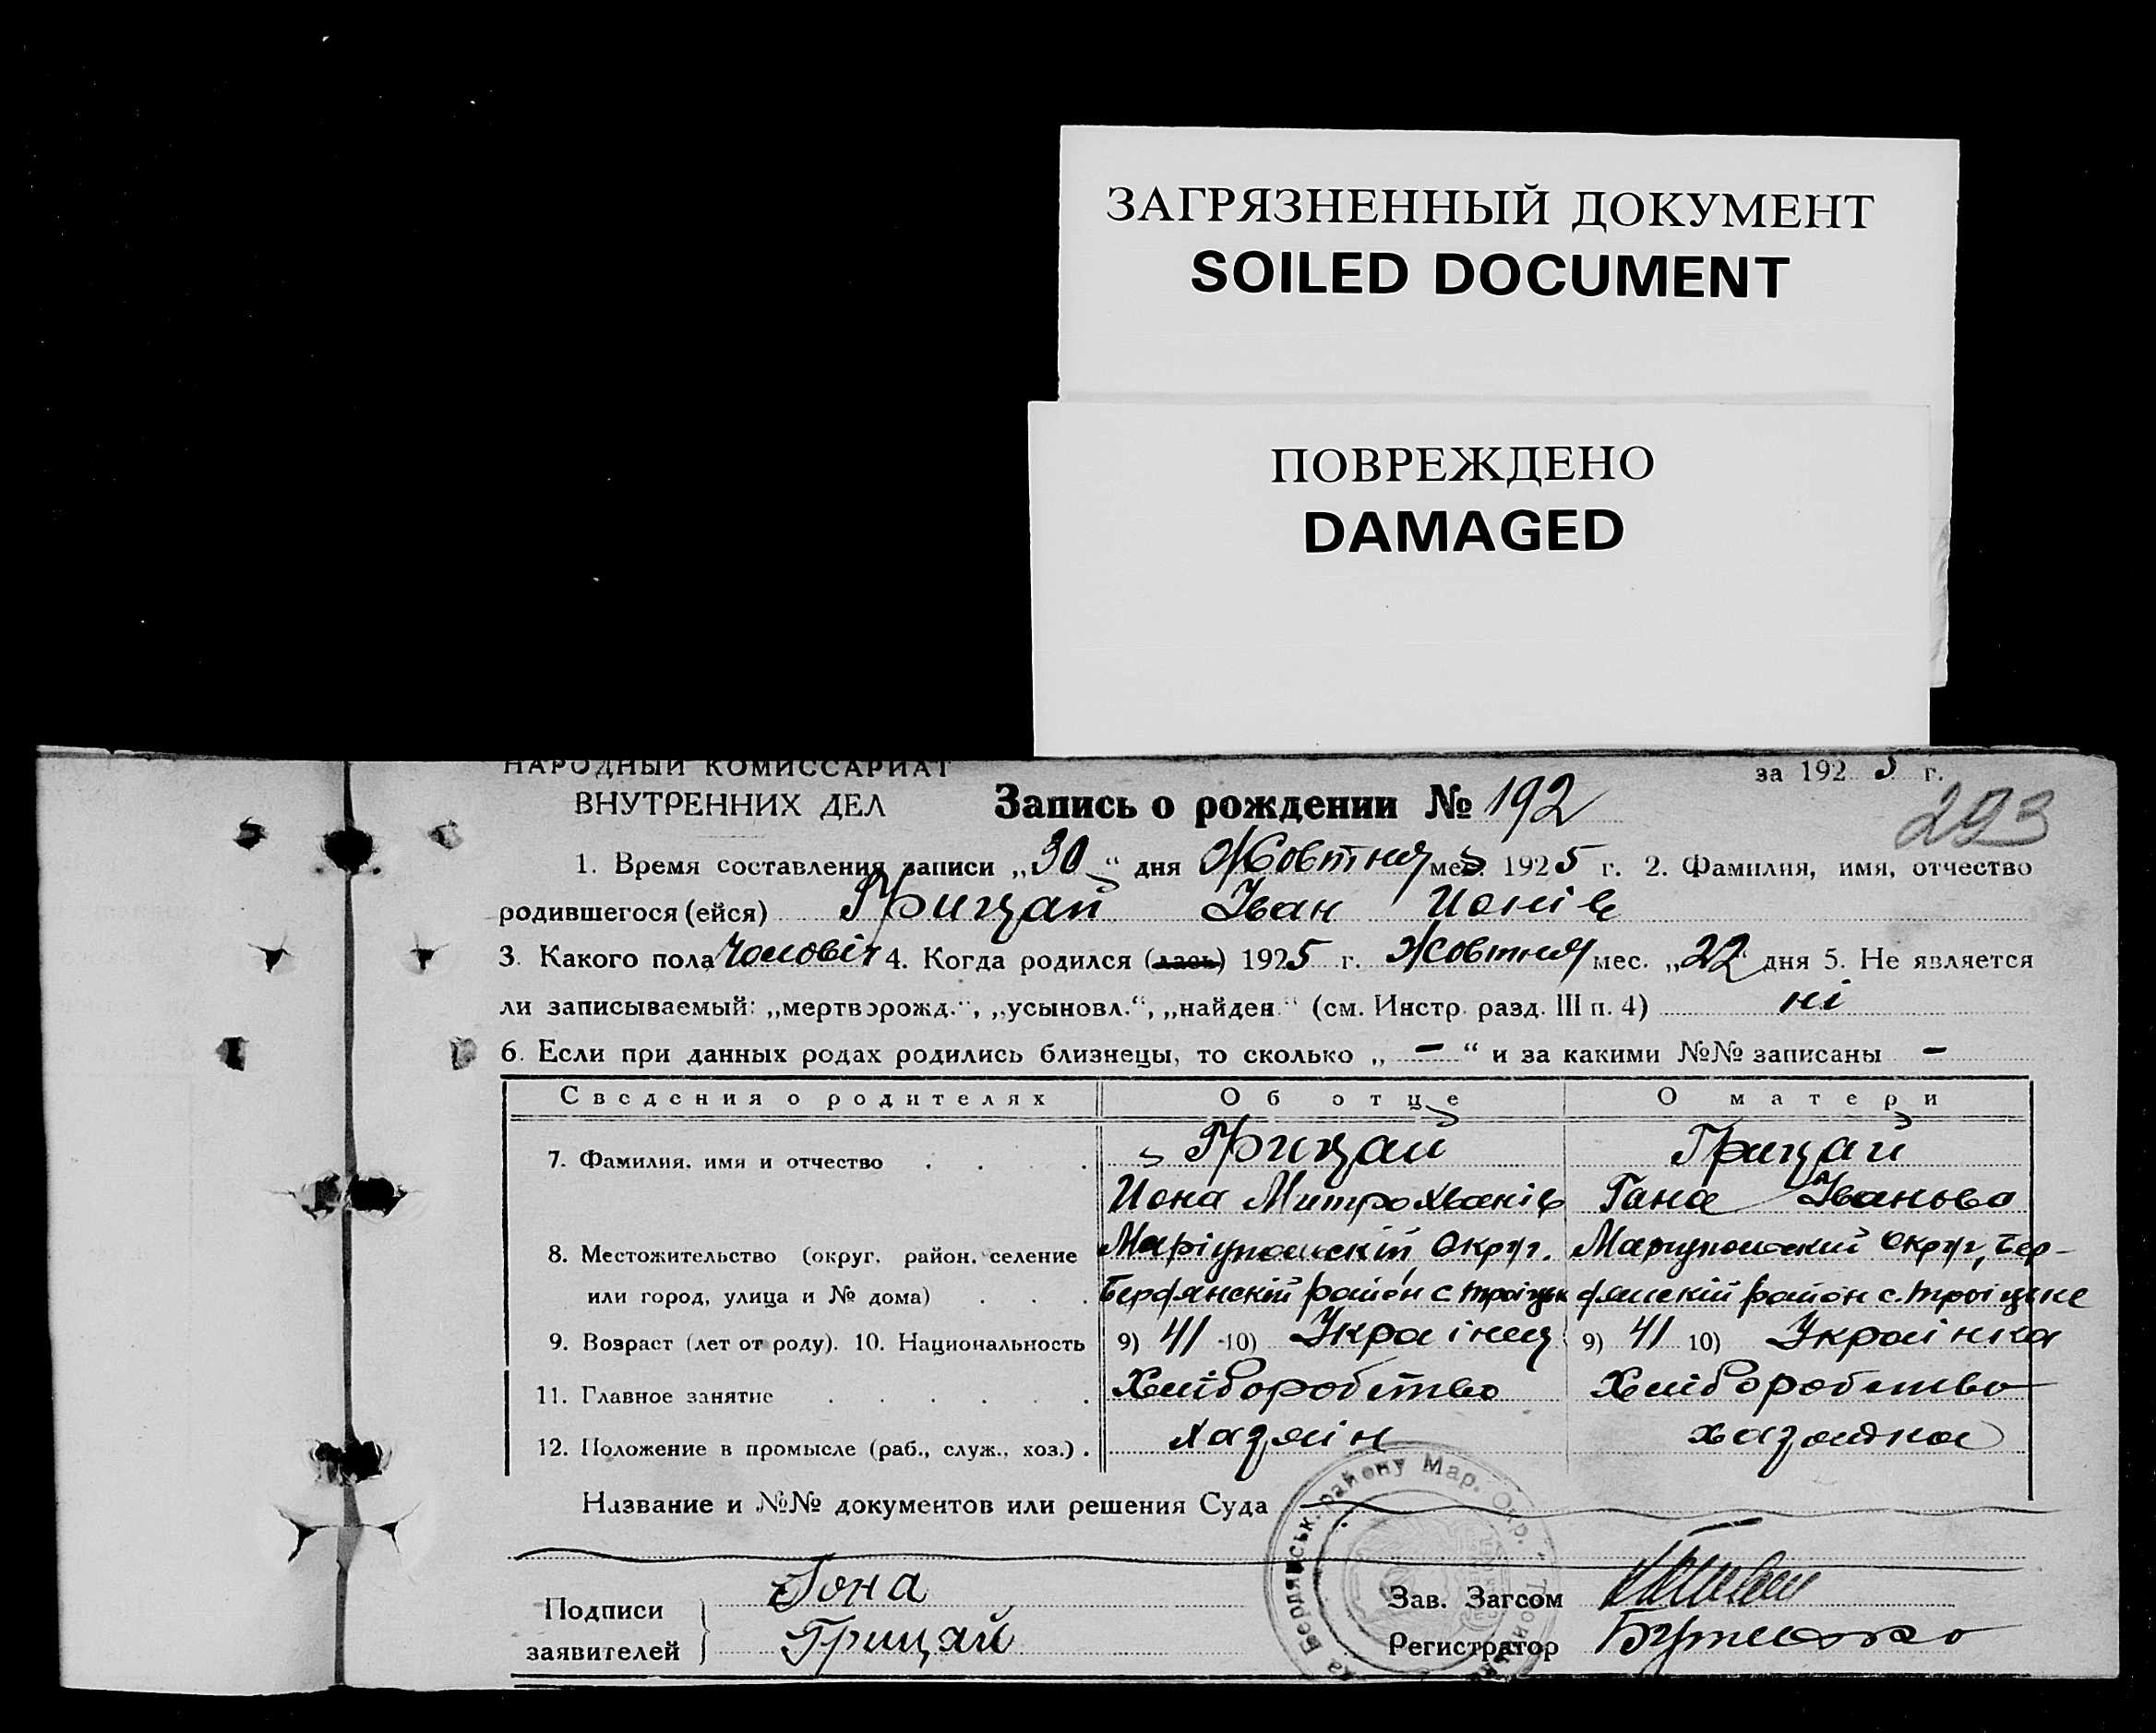 ЗАГРЯЗНЕННЫЙ ДОКУМЕНТ
SOILED DOCUMENT
ПОВРЕЖДЕНО
DAMAGED
НАРОДНЫЙ КОМИССАРИАТ
за 1925 г.
ВНУТРЕННИХ ДЕЛ
Запись о рождении № 192
293
1. Время составления записи „30“ дня Жовтня мес. 1925 г. 2. Фамилия, имя, отчество
родившегося (ейся) Грицай Іван Ионів
3. Какого пола Чоловіч 4. Когда родился (лась) 1925 г. Жовтня мес. „22 дня 5. Не является
ли записываемый: „мертворожд.“, „усыновл.“, „найден“ (см. Инстр. разд. III п. 4) ні
6. Если при данных родах родились близнецы, то сколько „ – “ и за какими №№ записаны –
Сведения о родителях Об отце О матери
7. Фамилия, имя и отчество . . . . Грицай Грицай
Иона Митрохванів Гана Іванова
8. Местожительство (округ, район, селение Маріупольскій Округ. Мариупольский Округ, Бер-
или город, улица и № дома) . . . Бердянскій район с Троіцьк дянскій район с. Троіцьке
9. Возраст (лет от роду). 10. Национальность 9) 41 10) Українец 9) 41 10) Українка
11. Главное занятие . . . . . . Хліборобство Хліборобство
12. Положение в промысле (раб., служ., хоз.) . хазяін хазяйка
Название и №№ документов или решения Суда
Бердянськ. району Мар. Окр.
Подписи заявителей
Іона
Грицай
Зав. Загсом
Регистратор